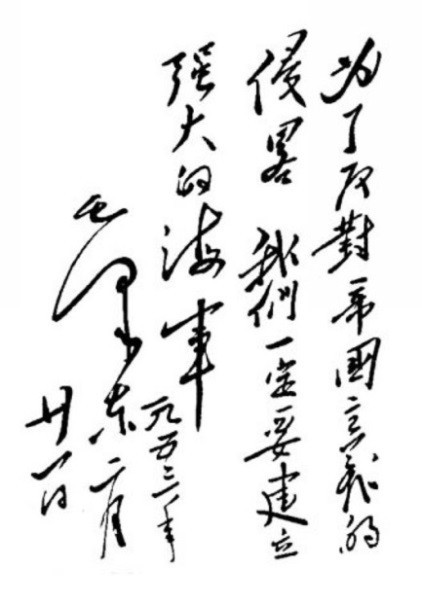 为了反對帝國主義的
侵畧我們一定要建立
强大的海軍
一九五三年
毛澤东二月
廿一日